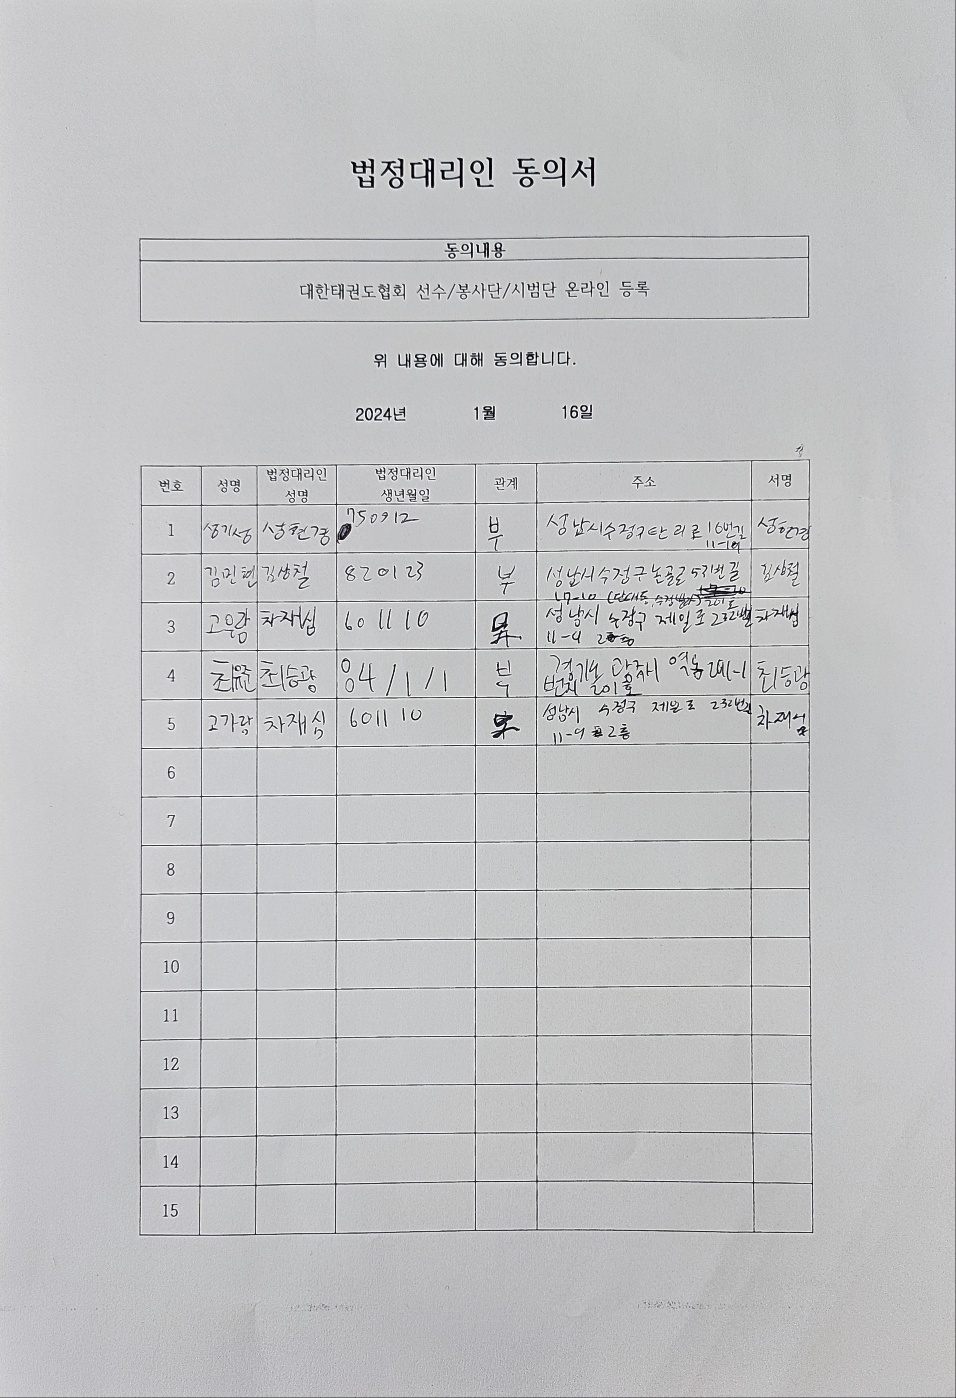 법정대리인 동의서
동의내용
대한태권도협회 선수/봉사단/시범단 온라인 등록
위 내용에 대해 동의합니다.
2024년 1월 16일
번호 성명 법정대리인 성명 법정대리인 생년월일 관계 주소 서명
1 성현경 750912 부 성남시수정구 16번길
2 김민현 김상철 820123 부 성남시수정구논골로 57번길 김상철
17-10
3 차재심 601110 성남시 수정구 제일로 232번길 차재심
11-4
4 최승광 84/1/1 부 경기도 광주시 역동 최승광
번지 201호
5 고가람 차재심 601110 성남시 수정구 제일로 232번길 차재심
11-4 2층
6
7
8
9
10
11
12
13
14
15